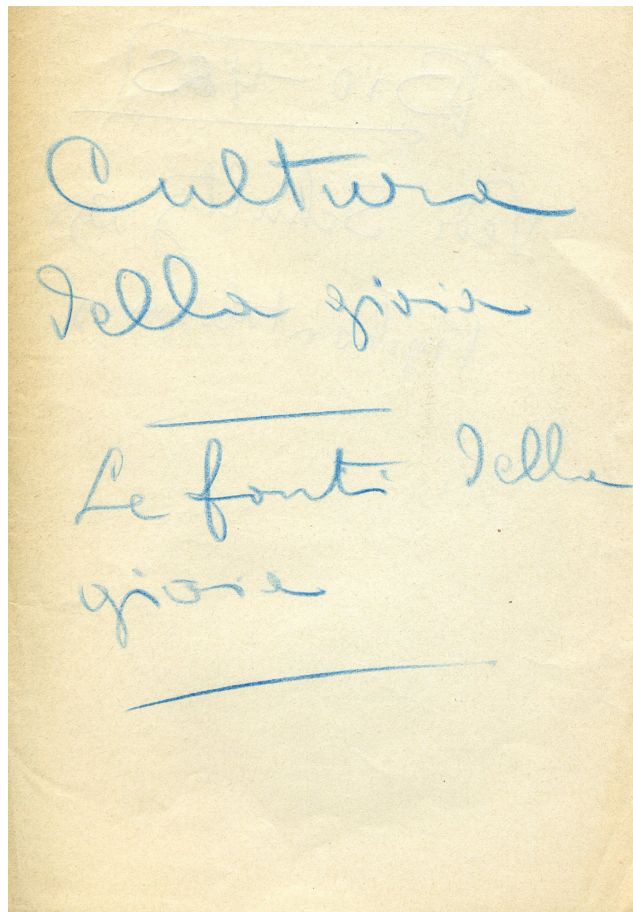 Cultura
della gioia
Le fonti della
gioia